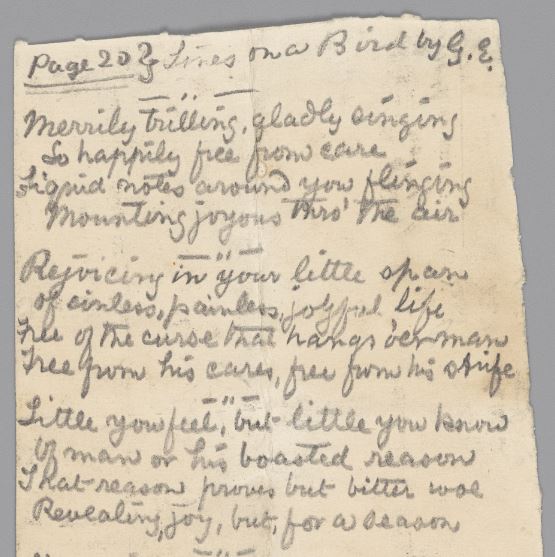 Page 20 } Lines on a Bird by G. E.
Merrily trilling, gladly singing
So happily free from care
Liquid notes around you flinging
Mounting joyous thro' the air
Rejoicing in your little span
of sinless, painless, joyful life
Free of the curse that hangs o'er man
Free from his cares, free from his strife
Little you feel, but little you know
Of man or his boasted reason
That reason proves but bitter woe
Revealing, joy, but, for a season